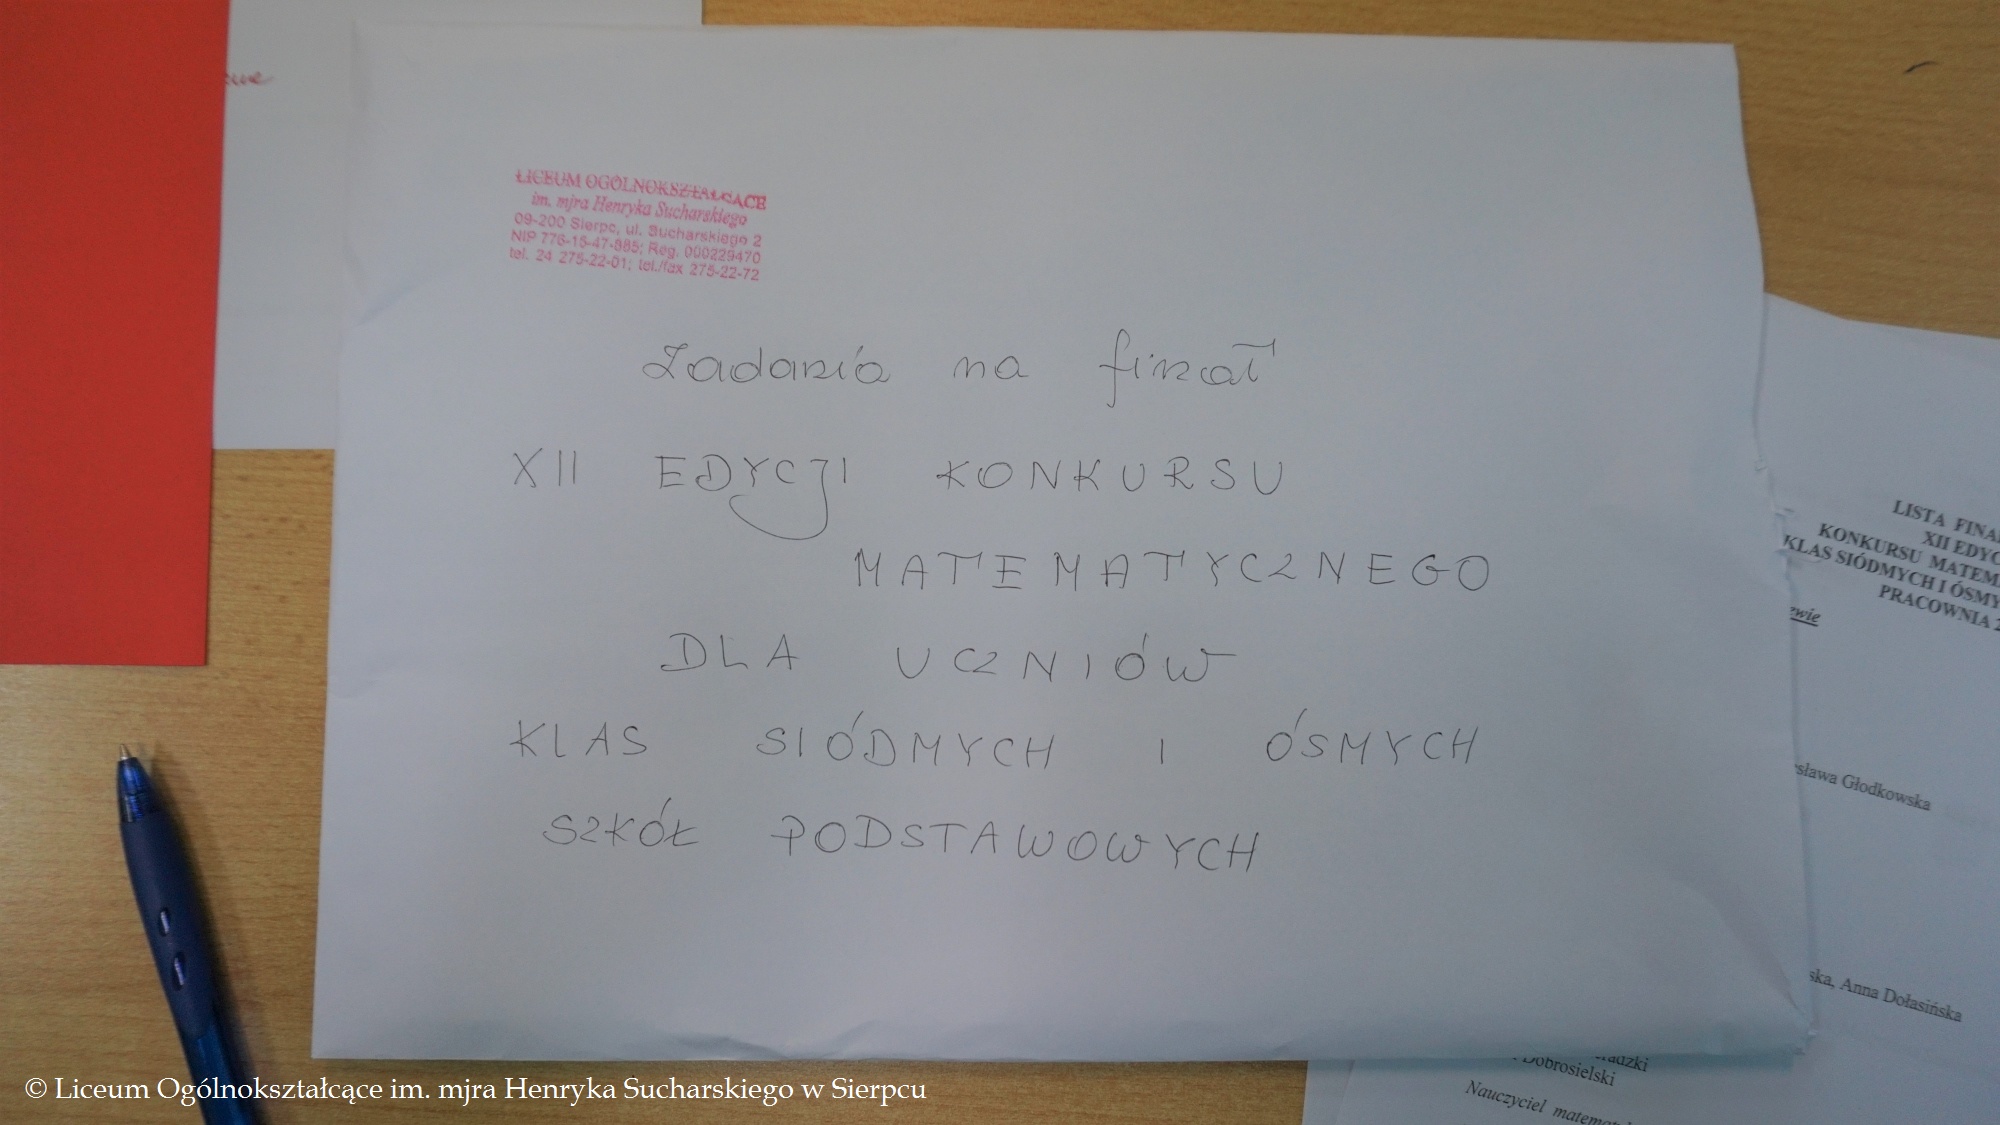 LICEUM OGÓLNOKSZTAŁCĄCE
im. mjra Henryka Sucharskiego
09-200 Sierpc, ul. Sucharskiego 2
NIP 776-15-47-885; Reg. 000229470
tel. 24 275-22-01; tel./fax 275-22-72
Zadania na finał
XII EDYCJI KONKURSU
MATEMATYCZNEGO
DLA UCZNIÓW
KLAS SIÓDMYCH I ÓSMYCH
SZKÓŁ PODSTAWOWYCH
LISTA FINA
XII EDYC
KONKURSU MATEM
KLAS SIÓDMYCH I ÓSMY
PRACOWNIA 2
sława Głodkowska
ska, Anna Dołasińska
radzki
Dobrosielski
Nauczyciel matemat
© Liceum Ogólnokształcące im. mjra Henryka Sucharskiego w Sierpcu